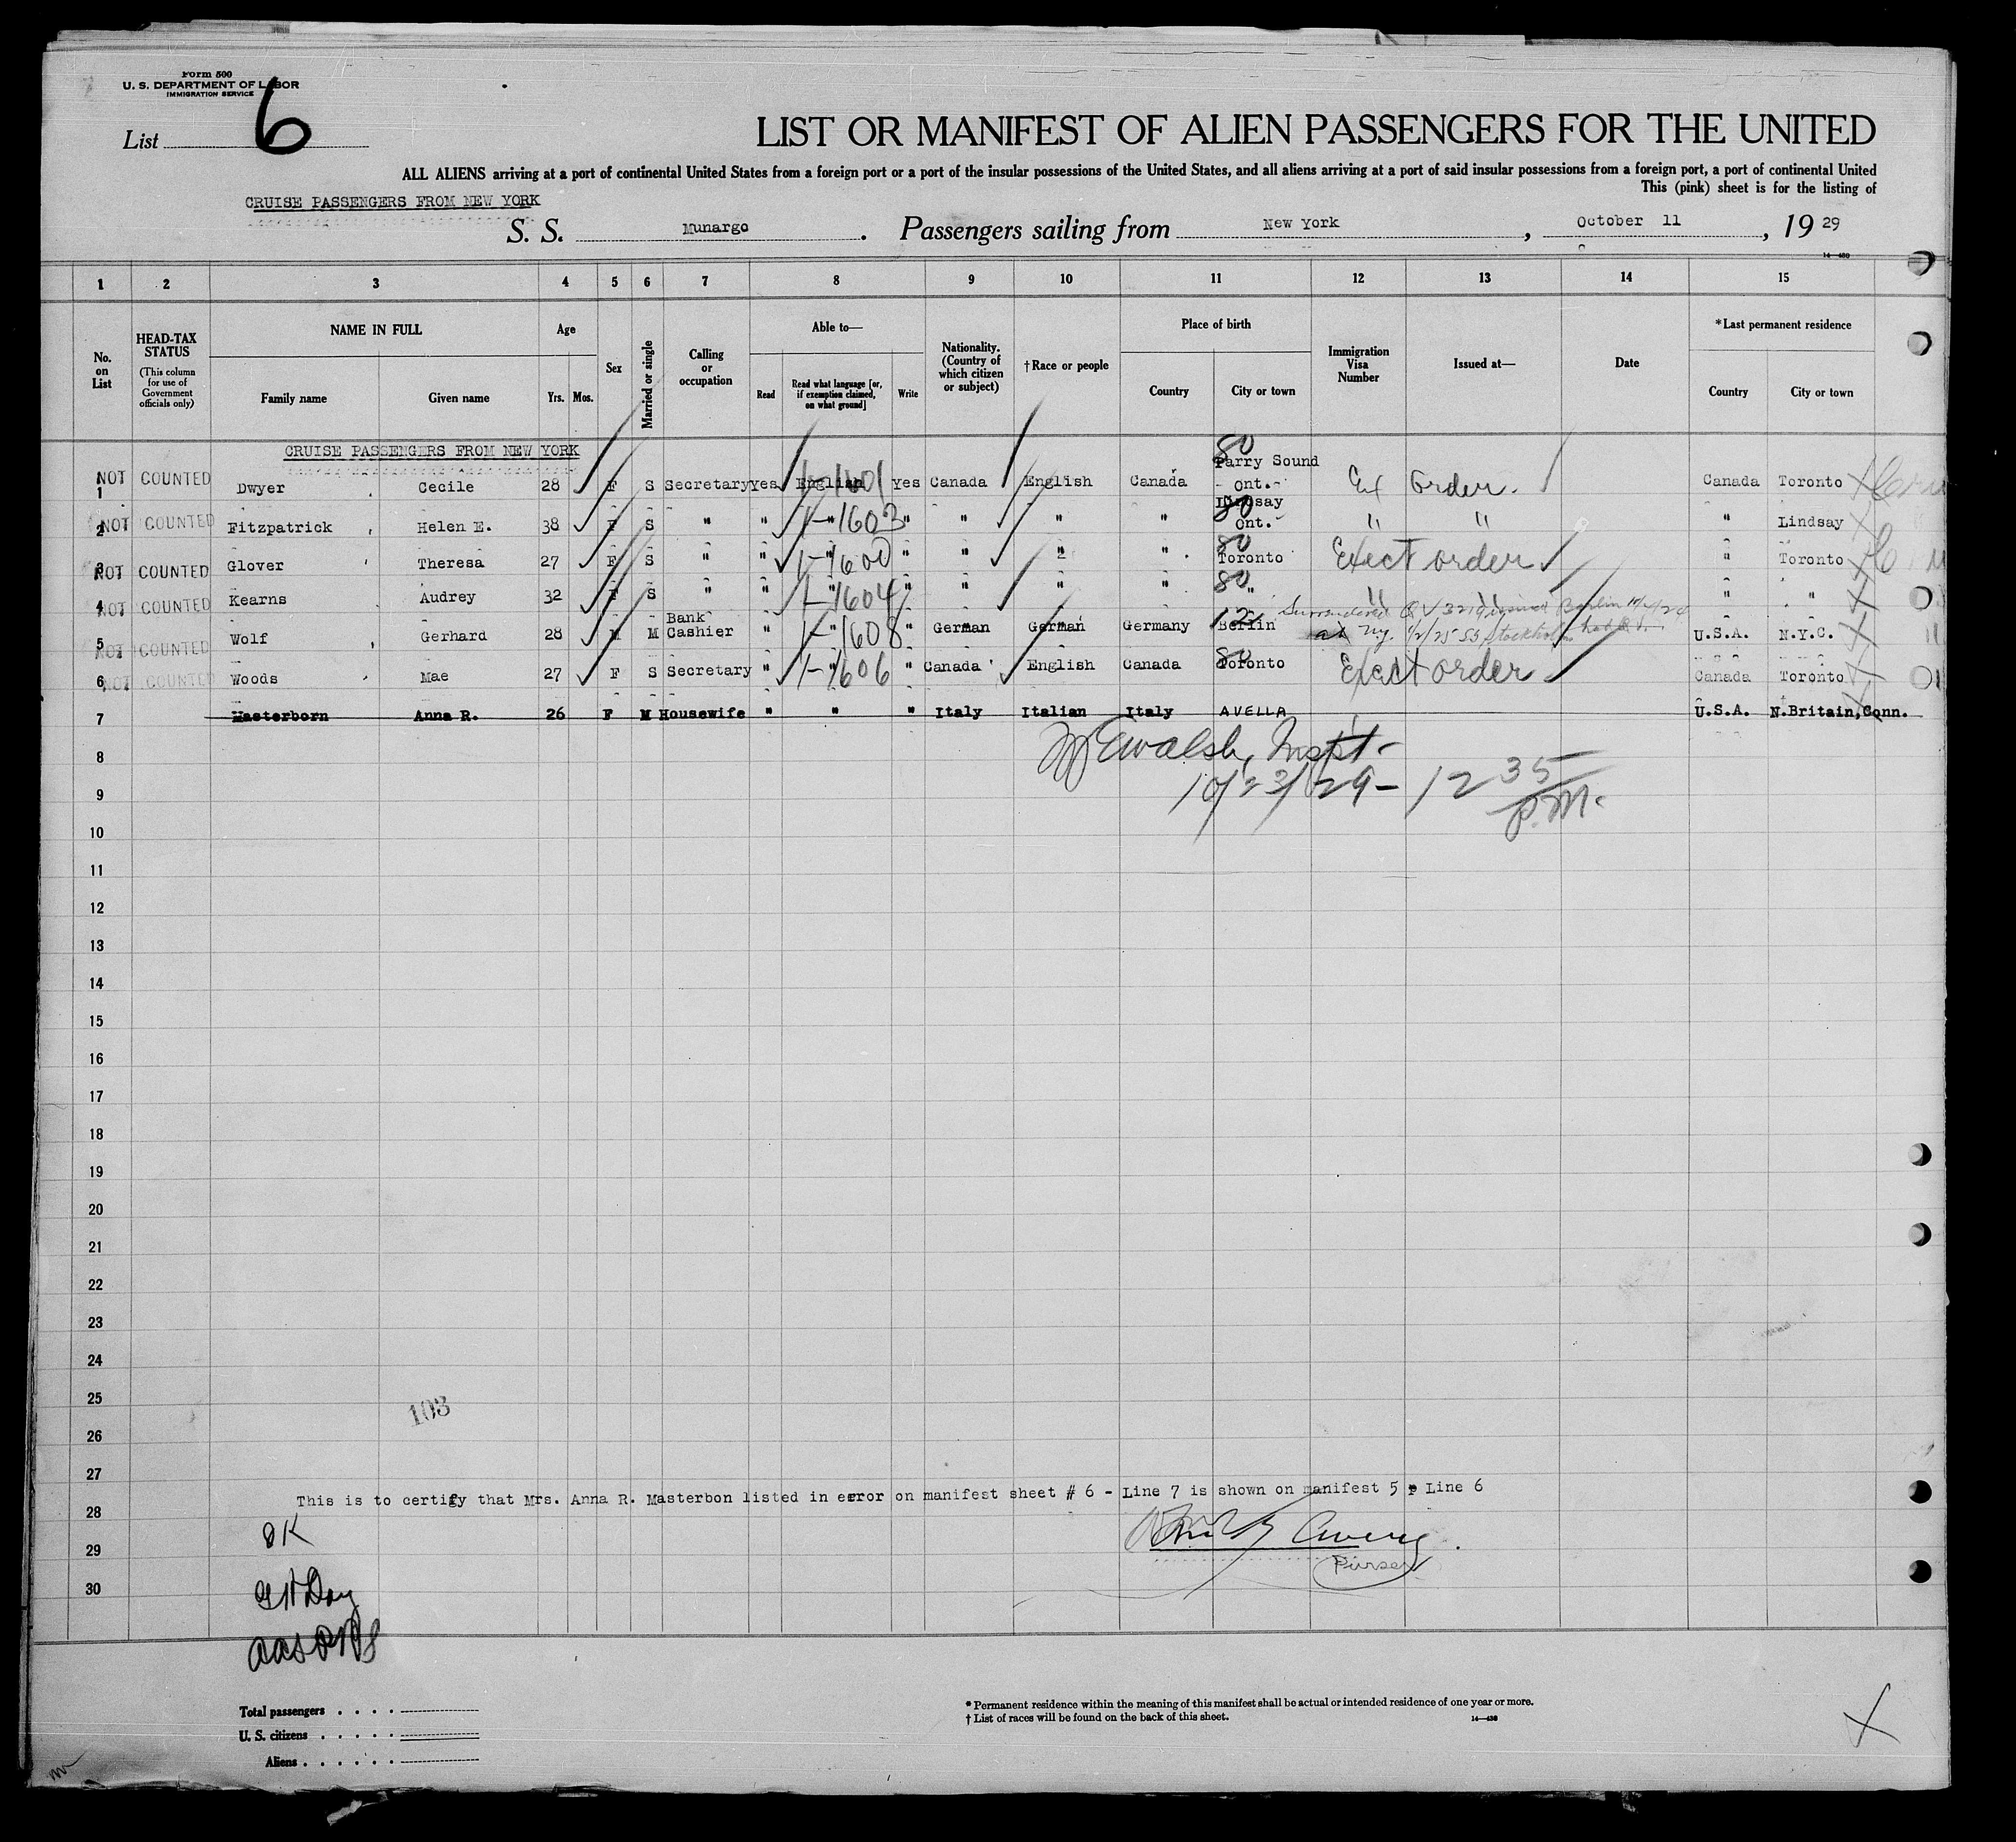 Form 500
U. S. DEPARTMENT OF LABOR
IMMIGRATION SERVICE
List 6
LIST OR MANIFEST OF ALIEN PASSENGERS FOR THE UNITED
ALL ALIENS arriving at a port of continental United States from a foreign port or a port of the insular possessions of the United States, and all aliens arriving at a port of said insular possessions from a foreign port, a port of continental United
This (pink) sheet is for the listing of
CRUISE PASSENGERS FROM NEW YORK
S. S. Munargo. Passengers sailing from New York, October 11, 1929
14—480
1 2 3 4 5 6 7 8 9 10 11 12 13 14 15
No. on List
HEAD-TAX STATUS (This column for use of Government officials only)
NAME IN FULL
Family name Given name
Age
Yrs. Mos.
Sex
Married or single
Calling or occupation
Able to—
Read
Read what language [or, if exemption claimed, on what ground]
Write
Nationality. (Country of which citizen or subject)
†Race or people
Place of birth
Country City or town
Immigration Visa Number
Issued at—
Date
*Last permanent residence
Country City or town
CRUISE PASSENGERS FROM NEW YORK
1 NOT COUNTED Dwyer, Cecile 28 F S Secretary Yes English 1-1601 Yes Canada English Canada 80 Parry Sound Ont. Ex order. Canada Toronto
2 NOT COUNTED Fitzpatrick, Helen E. 38 F S " " " 1-1603 " " " " 80 Lindsay Ont. " " " Lindsay
3 NOT COUNTED Glover, Theresa 27 F S " " " 1-1600 " " " " 80 Toronto Exect order " Toronto
4 NOT COUNTED Kearns, Audrey 32 F S " " " 1-1604 " " " " 80 " " " " "
5 NOT COUNTED Wolf, Gerhard 28 M M Bank Cashier " " 1-1608 " German German Germany 12 Berlin Surrendered Berlin Stockholm U.S.A. N.Y.C.
6 NOT COUNTED Woods, Mae 27 F S Secretary " " 1-1606 " Canada English Canada 80 Toronto Exect order Canada Toronto
7 Masterborn Anna R. 26 F M Housewife " " " Italy Italian Italy AVELLA U.S.A. N.Britain, Conn.
8
Walsh, Inspt-
9
10/23/29- 12 35 P.M.
10
11
12
13
14
15
16
17
18
19
20
21
22
23
24
25
103
26
27
This is to certify that Mrs. Anna R. Masterbon listed in error on manifest sheet # 6 - Line 7 is shown on manifest 5 Line 6
28
OK
29
Purser
30
Total passengers
U. S. citizens
Aliens
* Permanent residence within the meaning of this manifest shall be actual or intended residence of one year or more.
† List of races will be found on the back of this sheet.